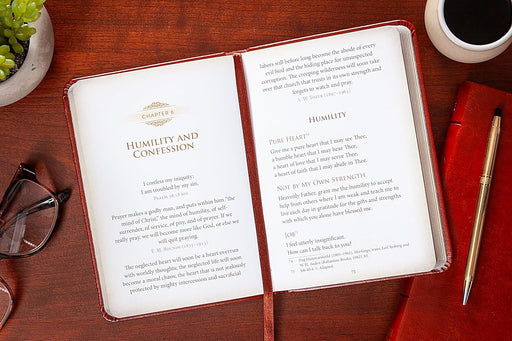 CHAPTER 6
HUMILITY AND
CONFESSION
I confess my iniquity:
I am troubled by my sin.
PSALM 38:18 NIV
Prayer makes a godly man, and puts within him "the
mind of Christ," the mind of humility, of self-
surrender, of service, of pity, and of prayer. If we
really pray, we will become more like God, or else we
will quit praying.
E. M. BOUNDS (1835-1913)
The neglected heart will soon be a heart overrun
with worldly thoughts; the neglected life will soon
become a moral chaos; the heart that is not jealously
protected by mighty intercession and sacrificial
labors will before long become the abode of every
evil bird and the hiding place for unsuspected
corruption. The creeping wilderness will soon take
over that church that trusts in its own strength and
forgets to watch and pray.
A. W. TOZER (1897-1963)
HUMILITY
PURE HEART
Give me a pure heart that I may see Thee,
a humble heart that I may hear Thee,
a heart of love that I may serve Thee,
a heart of faith that I may abide in Thee.
NOT BY MY OWN STRENGTH
Heavenly Father, grant me the humility to accept
help from others where I am weak and teach me to
live each day in gratitude for the gifts and strengths
with which you alone have blessed me.
JOB
I feel utterly insignificant.
How can I talk back to you?
Dag Hammarskjöld (1905-1961), Markings, trans. Leif Sjöberg and
W.H. Auden (Ballantine Books, 1982), 83.
Job 40:4-5. Adapted.
73